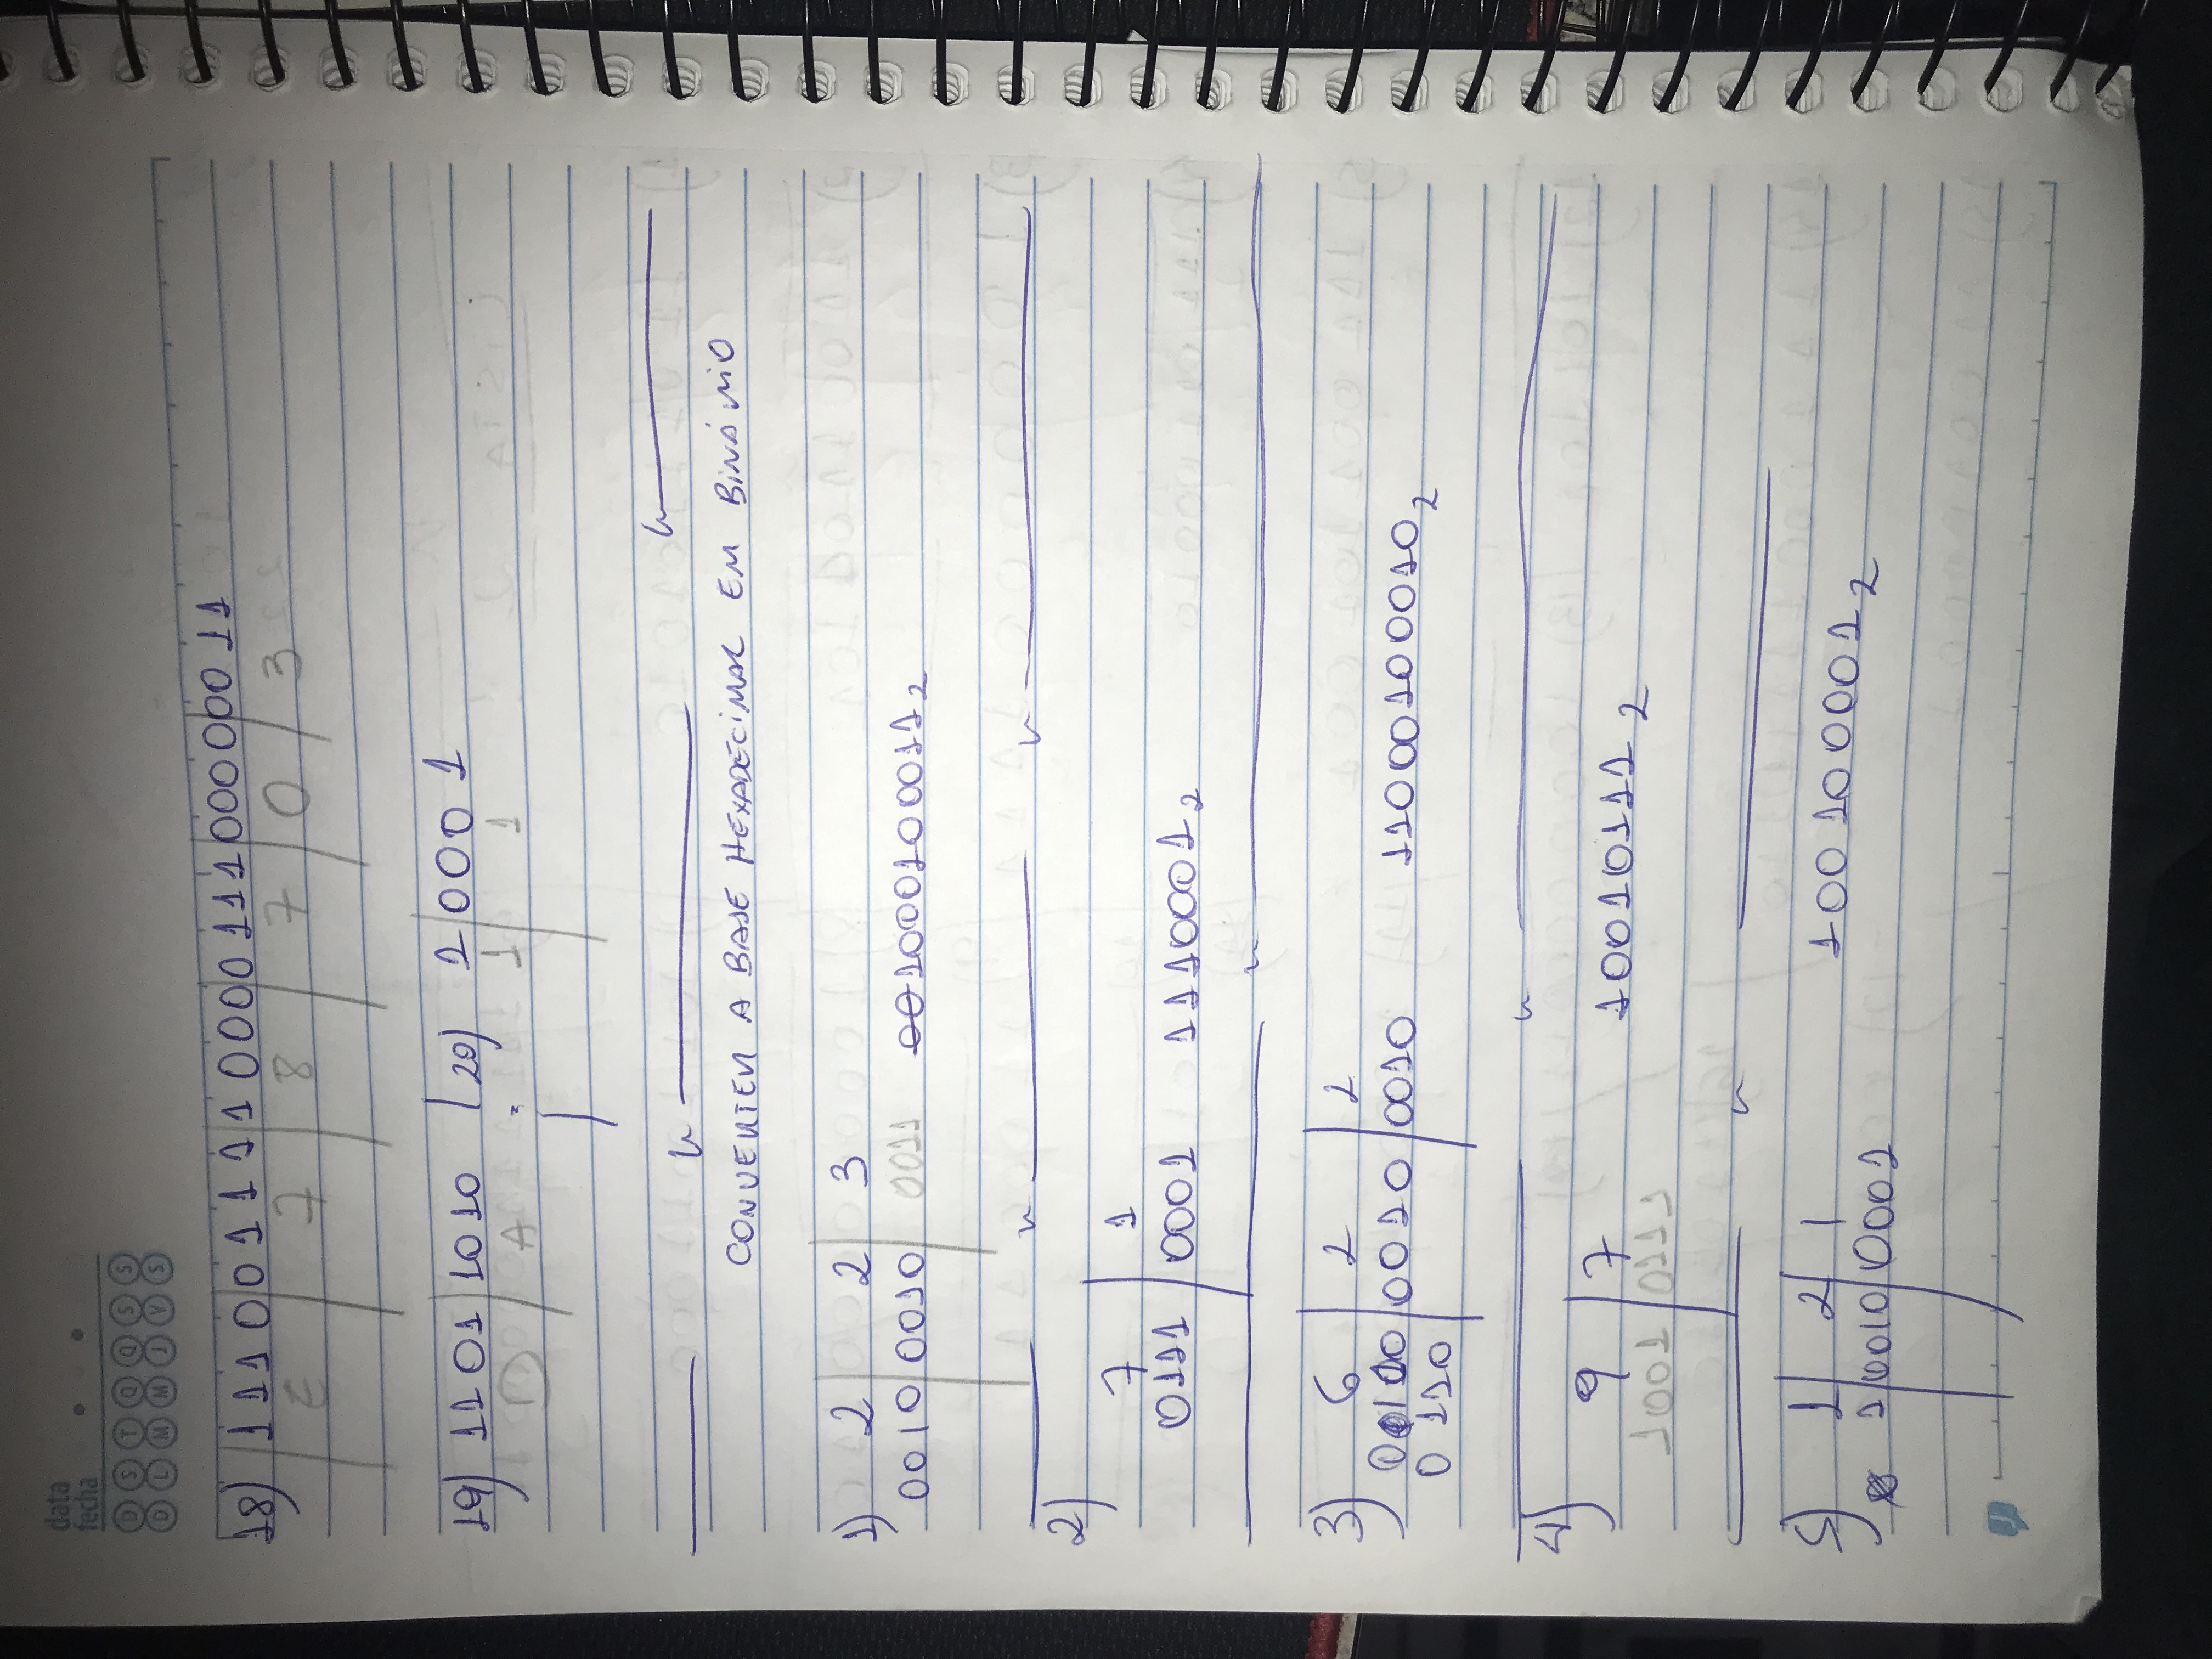 data
fecha
D S T Q Q S S
D L M M J V S
18) 111001111000011100000011
E 7 8 7 0 3
19) 1101 1010 20) 1 0001
D A 1 1
CONVERTER A BASE HEXADECIMAL EM BINÁRIO
1) 2 2 3
0010 0010 0011 001000100011₂
2)
7 1
0111 0001 1110001₂
3) 6 2 2
00100 0010 0010 11000100010₂
0110
4)
9 7 10010111₂
1001 0111
5) 1 2 1 100100001₂
1 0010 0001